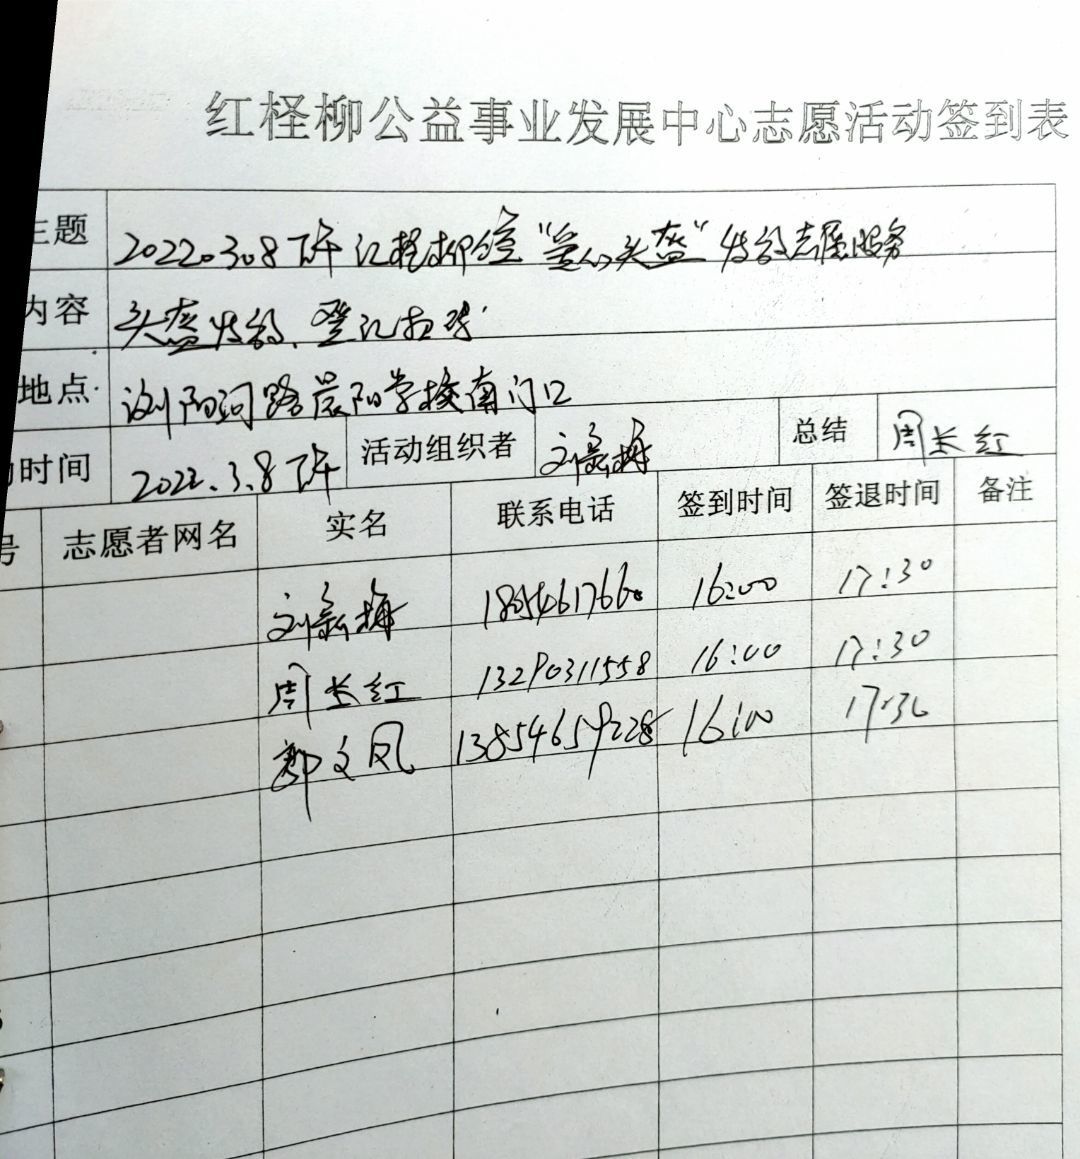 红柽柳公益事业发展中心志愿活动签到表
主题 2022.3.8下午红柽柳 "爱心头盔" 志愿服务
内容 头盔 、登记
地点 浏阳河路晨阳学校南门口
时间 2022.3.8下午 活动组织者 刘 梅 总结 周长红
号 志愿者网名 实名 联系电话 签到时间 签退时间 备注
刘 梅 16:00 17:30
周长红 13290311558 16:00 17:30
郭文凤 13854659228 16:00 17:30